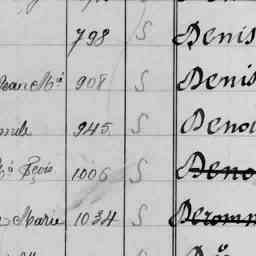 798 S Denis
Jean Mie 908 S Denis
945 S Denou
1006 S Deno
Marie 1034 S Deromm